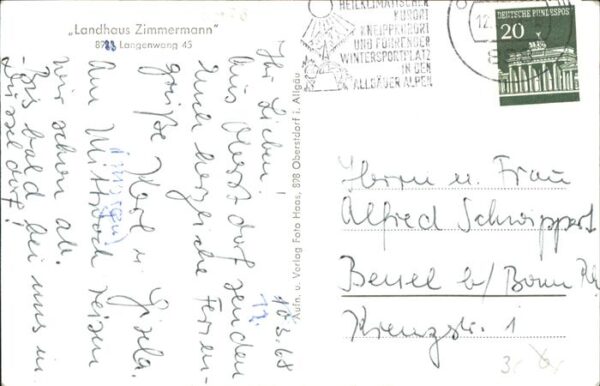 „Landhaus Zimmermann"
Langenwang 45
HEILKLIMATISCHER
KURORT
KNEIPPKURORT
UND FÜHRENDER
WINTERSPORTPLATZ
IN DEN
ALLGÄUER ALPEN
DEUTSCHE BUNDESPOST
20
10.3.68
12.
Ihr Lieben!
Aus Oberstdorf senden
Euch herzliche Ferien-
grüße Karl u. Gisela.
(morgen)
Am Mittwoch reisen
wir schon ab.
Bis bald bei uns in
Düsseldorf!
Aufn. u. Verlag Foto Haas, 898 Oberstdorf i. Allgäu
Herrn u. Frau
Alfred Schwippert
Beuel b/ Bonn Rh
Kreuzstr. 1